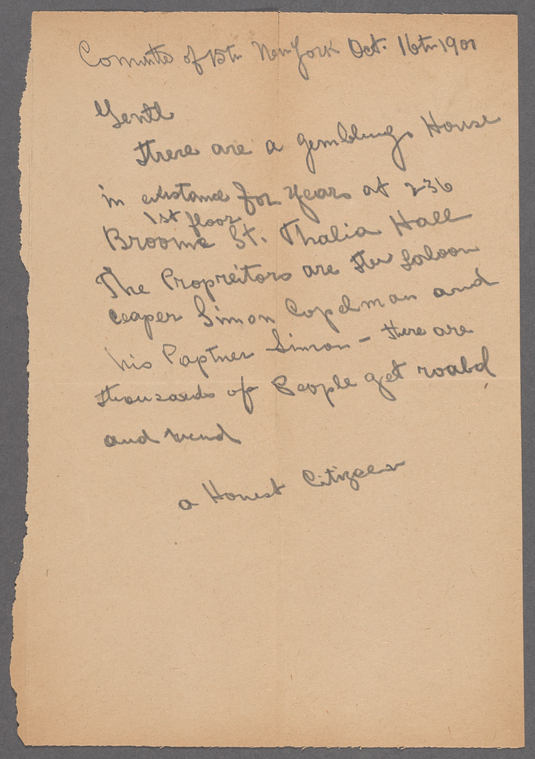 Committe of 15th New York Oct. 16th 1901
Gentl
There are a gembling House
in existance for years at 236
1st floor
Broome St. Thalia Hall
The Propreitors are the Soloon
ceaper Simon Copelman and
his Partner Simon - there are
thousands of People get roabd
and
a Honest Citizen